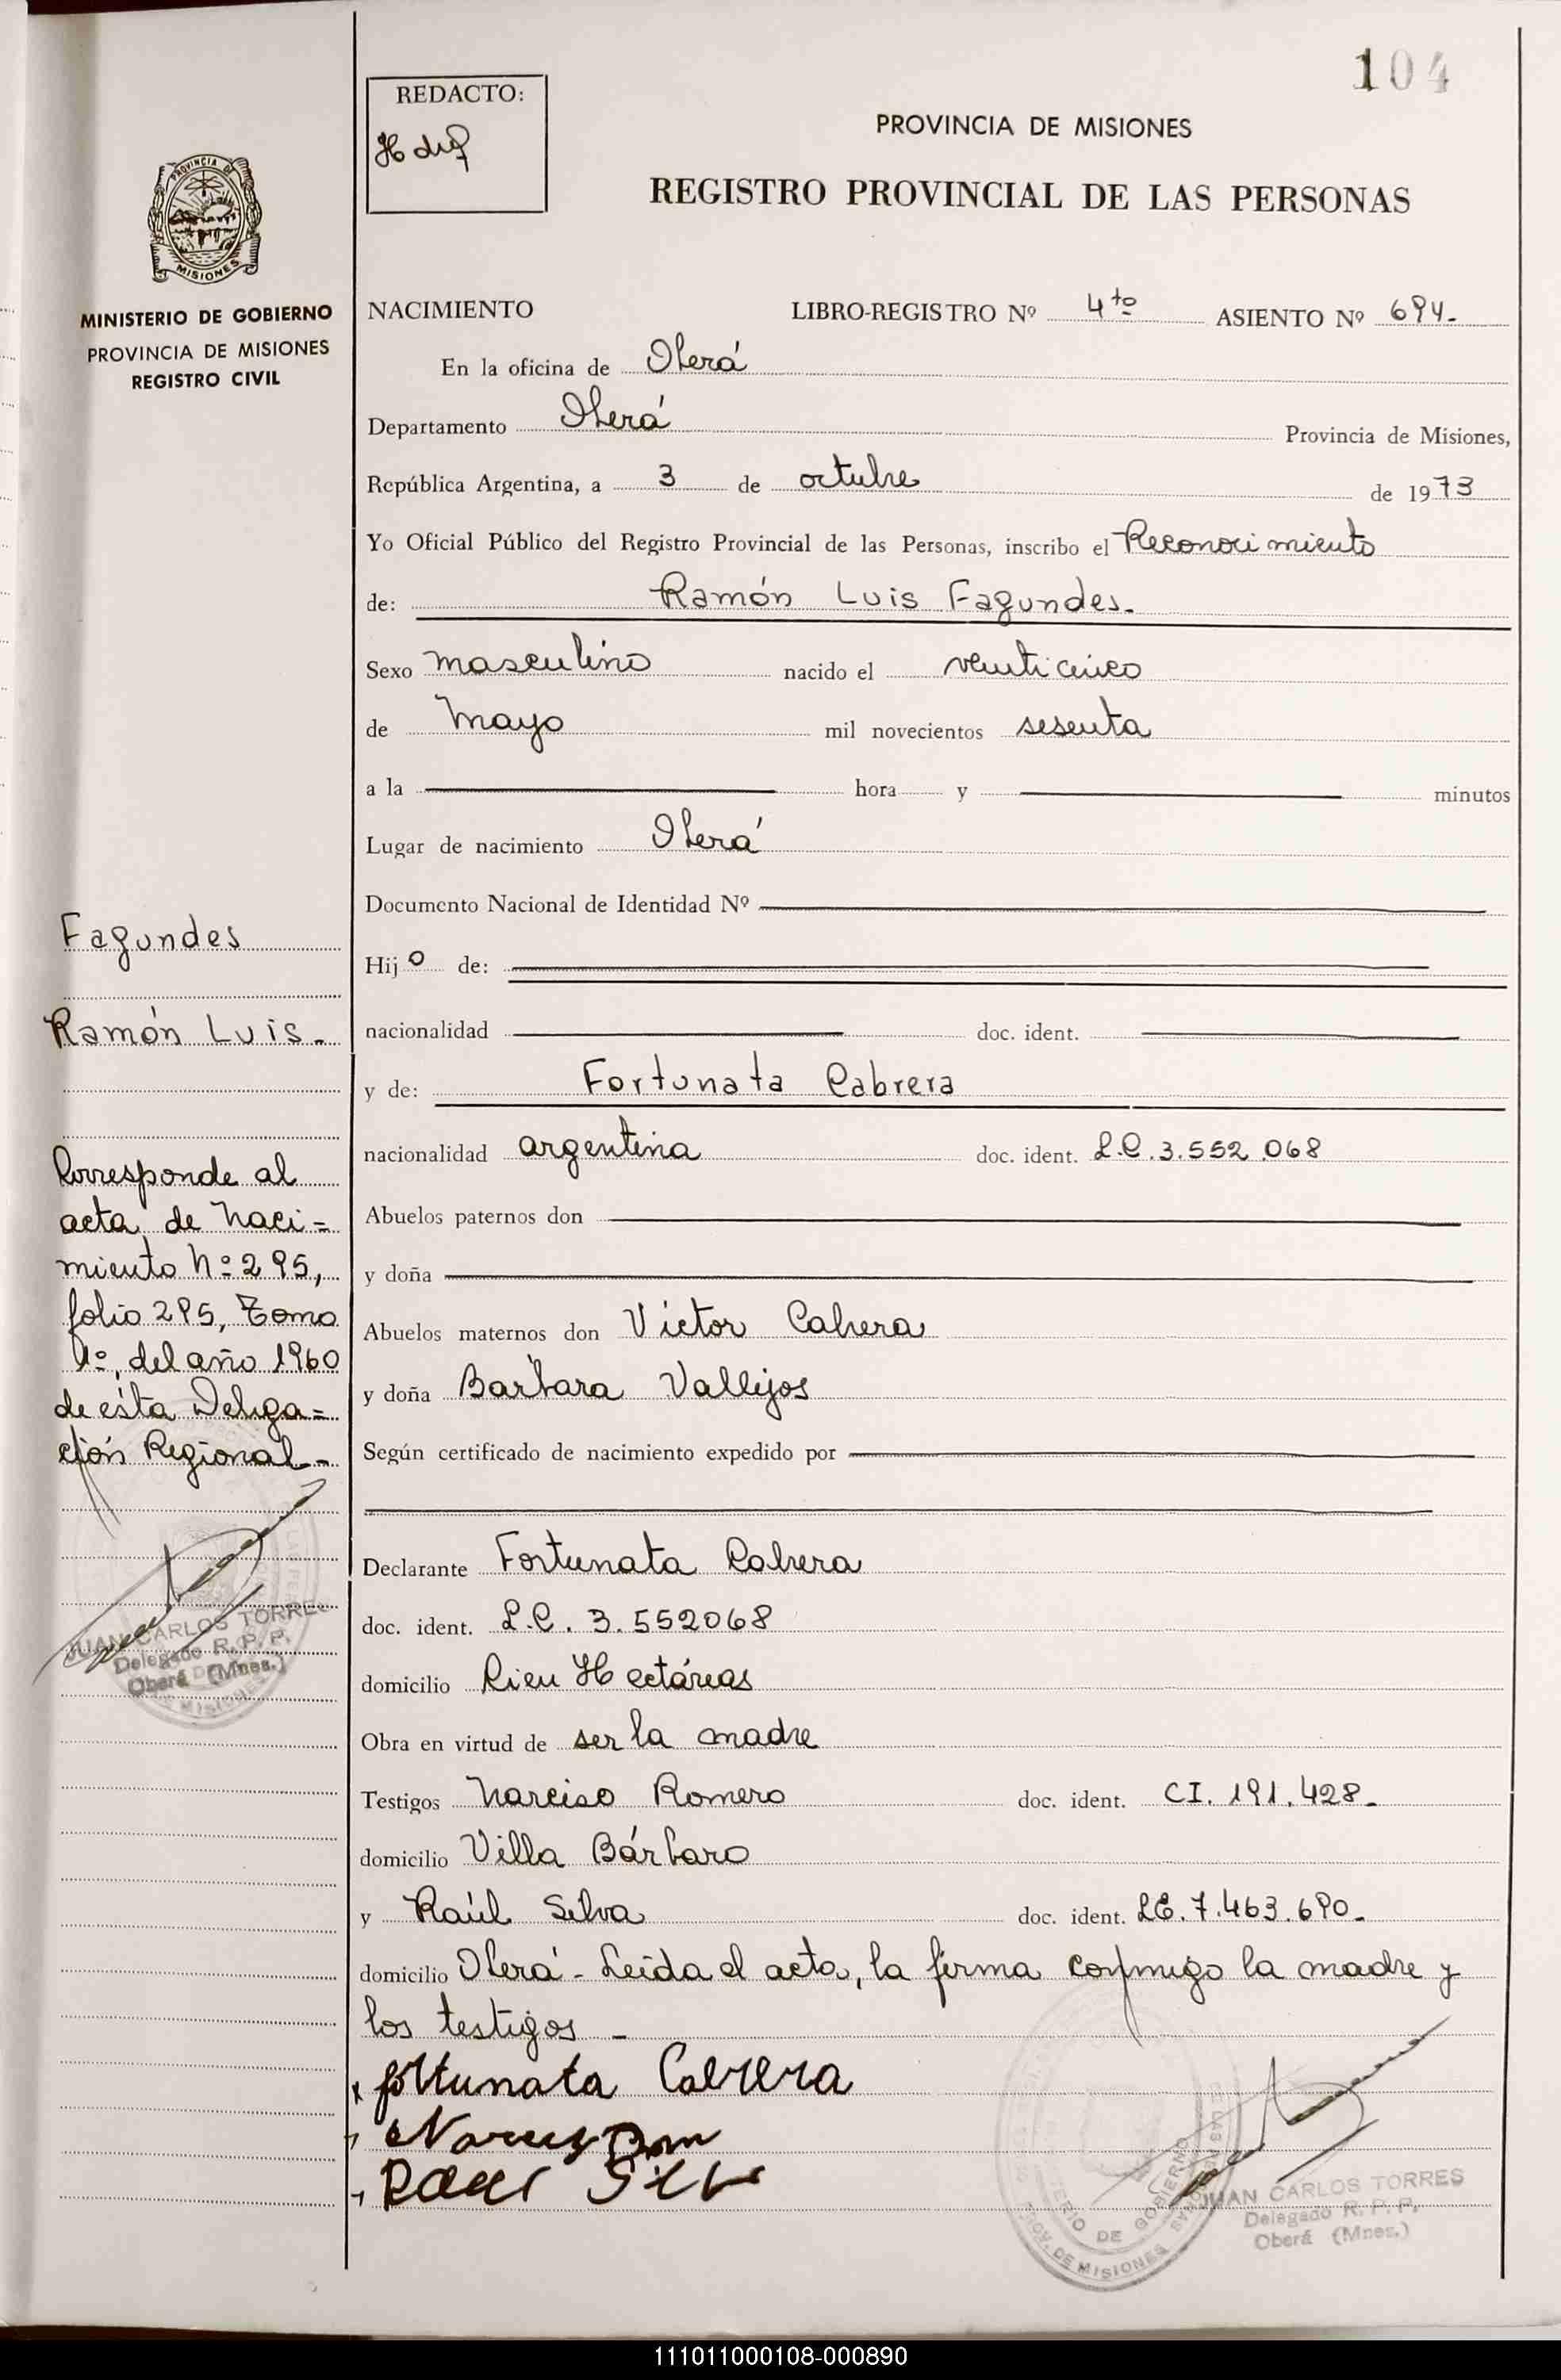 104
REDACTO:
PROVINCIA DE MISIONES
REGISTRO PROVINCIAL DE LAS PERSONAS
PROVINCIA DE
MISIONES
MINISTERIO DE GOBIERNO
PROVINCIA DE MISIONES
REGISTRO CIVIL
NACIMIENTO LIBRO-REGISTRO Nº 4to ASIENTO Nº 694.
En la oficina de Oberá
Departamento Oberá Provincia de Misiones,
República Argentina, a 3 de octubre de 1973
Yo Oficial Público del Registro Provincial de las Personas, inscribo el Reconocimiento
de: Ramón Luis Fagundes.
Sexo masculino nacido el venticinco
de Mayo mil novecientos sesenta
a la hora y minutos
Lugar de nacimiento Oberá
Documento Nacional de Identidad Nº
Hijo de:
nacionalidad doc. ident.
y de: Fortunata Cabrera
nacionalidad argentina doc. ident. L.C. 3.552.068
Abuelos paternos don
y doña
Abuelos maternos don Victor Cabrera
y doña Barbara Vallejos
Según certificado de nacimiento expedido por
Declarante Fortunata Cabrera
doc. ident. L.C. 3.552068
domicilio Cien Hectáreas
Obra en virtud de ser la madre
Testigos Narciso Romero doc. ident. CI. 191.428.
domicilio Villa Bárbaro
y Raúl Silva doc. ident. LE. 7.463.690.
domicilio Oberá - Leida el acta, la firma conmigo la madre y
los testigos -
Fortunata Cabrera
Raul Silva
JUAN CARLOS TORRES
Delegado R. P. P.
Oberá (Mnes.)
Fagundes
Ramón Luis.
Corresponde al
acta de Naci=
miento Nº 295,
folio 295, Tomo
1º, del año 1960
de ésta Delega=
ción Regional -
JUAN CARLOS TORRES
Delegado R. P. P.
Oberá (Mnes.)
111011000108-000890